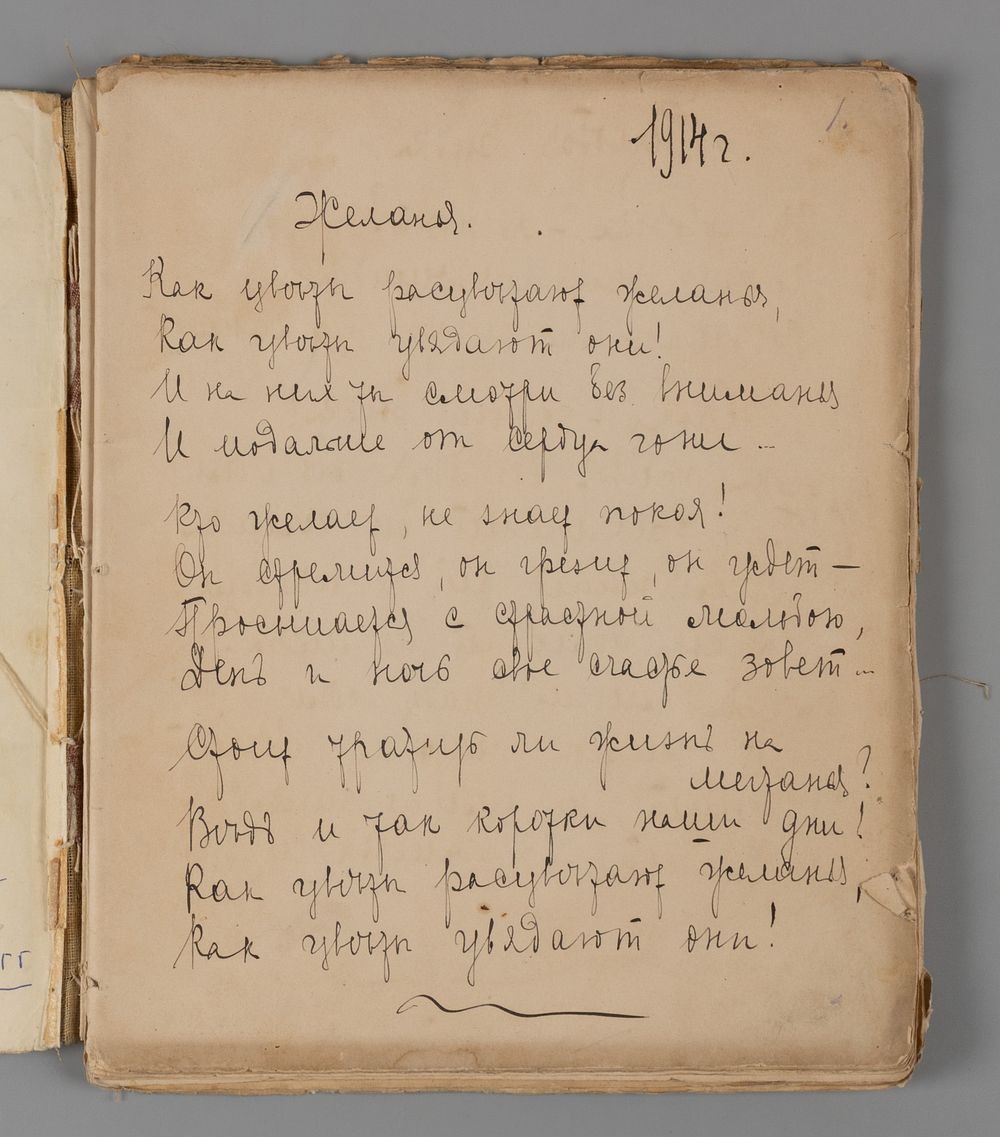 1914 г.
1.
Желанья.
Как цвѣты расцвѣтают желанья,
Как цвѣты увядают они!
И на них ты смотри без вниманья
И подальше от сердца гони...
Кто желает, не знает покоя!
Он стремится, он грезит, он ждет —
Просыпается с страстной мольбою,
День и ночь свое счастье зовет...
Стоит тратить ли жизнь на
мечтанья?
Вѣдь и так коротки наши дни!
Как цвѣты расцвѣтают желанья,
Как цвѣты увядают они!
гг